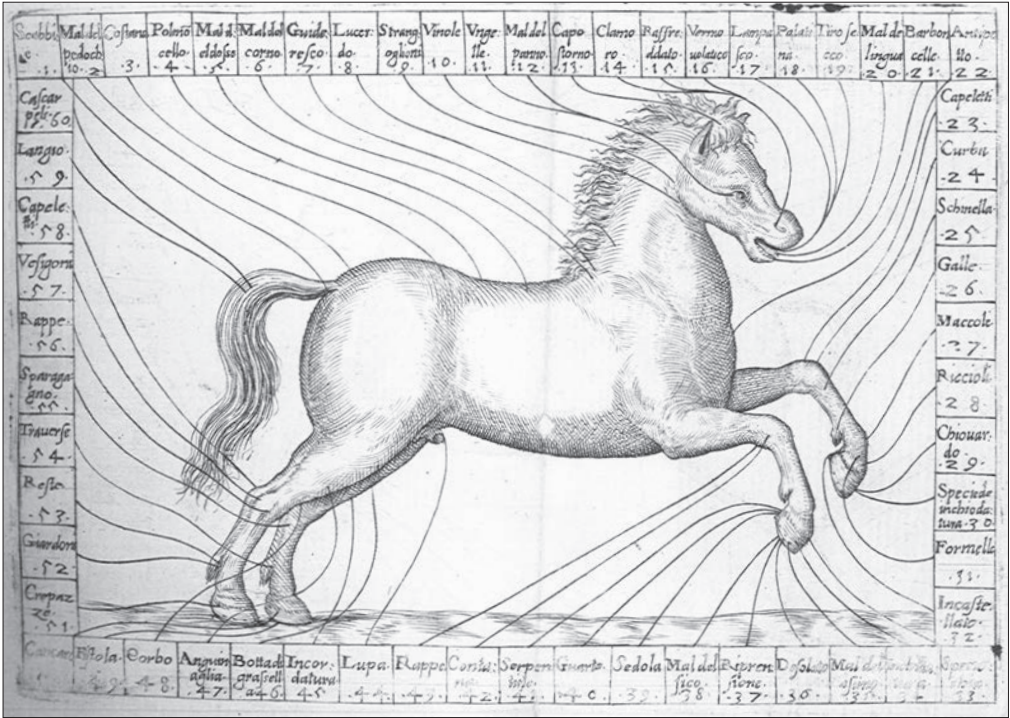 Scabbi
.1.
Mal del
pedoch
io. 2
Costana
.3.
Polmo
cello.
.4.
Mal d.
el dosso
.5.
Mal del
corno.
.6.
Guide
resco.
.7.
Lucer
do.
8.
Strang
oglioni
9.
Viuole
10.
Vnge
lle.
.11.
Mal del
panno.
.12.
Capo
storno.
.13.
Clamo
ro.
14
Raffre
ddato.
.15.
Vermo
uolatico
.16.
Lampa
sco.
.17.
Palati
na.
.18.
Tiro se
cco.
.19.
Mal de
lingua
.20.
Barbon
celle.
.21.
.22.
Capeletti
23.
Curba
.24
Schinella
.25
Galle.
.26.
Maccole
.27.
Riccioli
28.
Chiouar
do.
.29.
Specie de
inchioda
tura.30
Formelle
.31.
Incaste
llato.
32.
33.
Desolato
.36.
Ripren
sione.
.37.
Mal del
fico.
38
Sedola
.39.
Guarto.
.40.
Serpen
tine.
Rappe
Lupa.
.44.
Incor
datura
.45.
Botta di
grassell
a46.
Anguin
aglia.
.47.
Corbo
.48.
Fistola.
.49.
Crepaz
ze.
.51.
Giardoni
.52.
Reste.
.53.
Trauerse
.54.
Sparaga
gno.
.55.
Rappe.
.56.
Vesigoni
.57.
Capele
tti.
.58.
Langio.
.59.
Cascar
peli.60